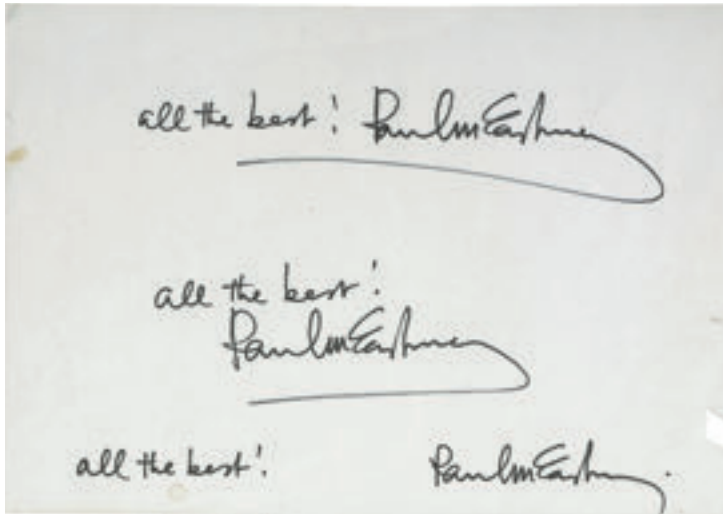 all the best! Paul McCartney
all the best!
Paul McCartney
all the best! Paul McCartney